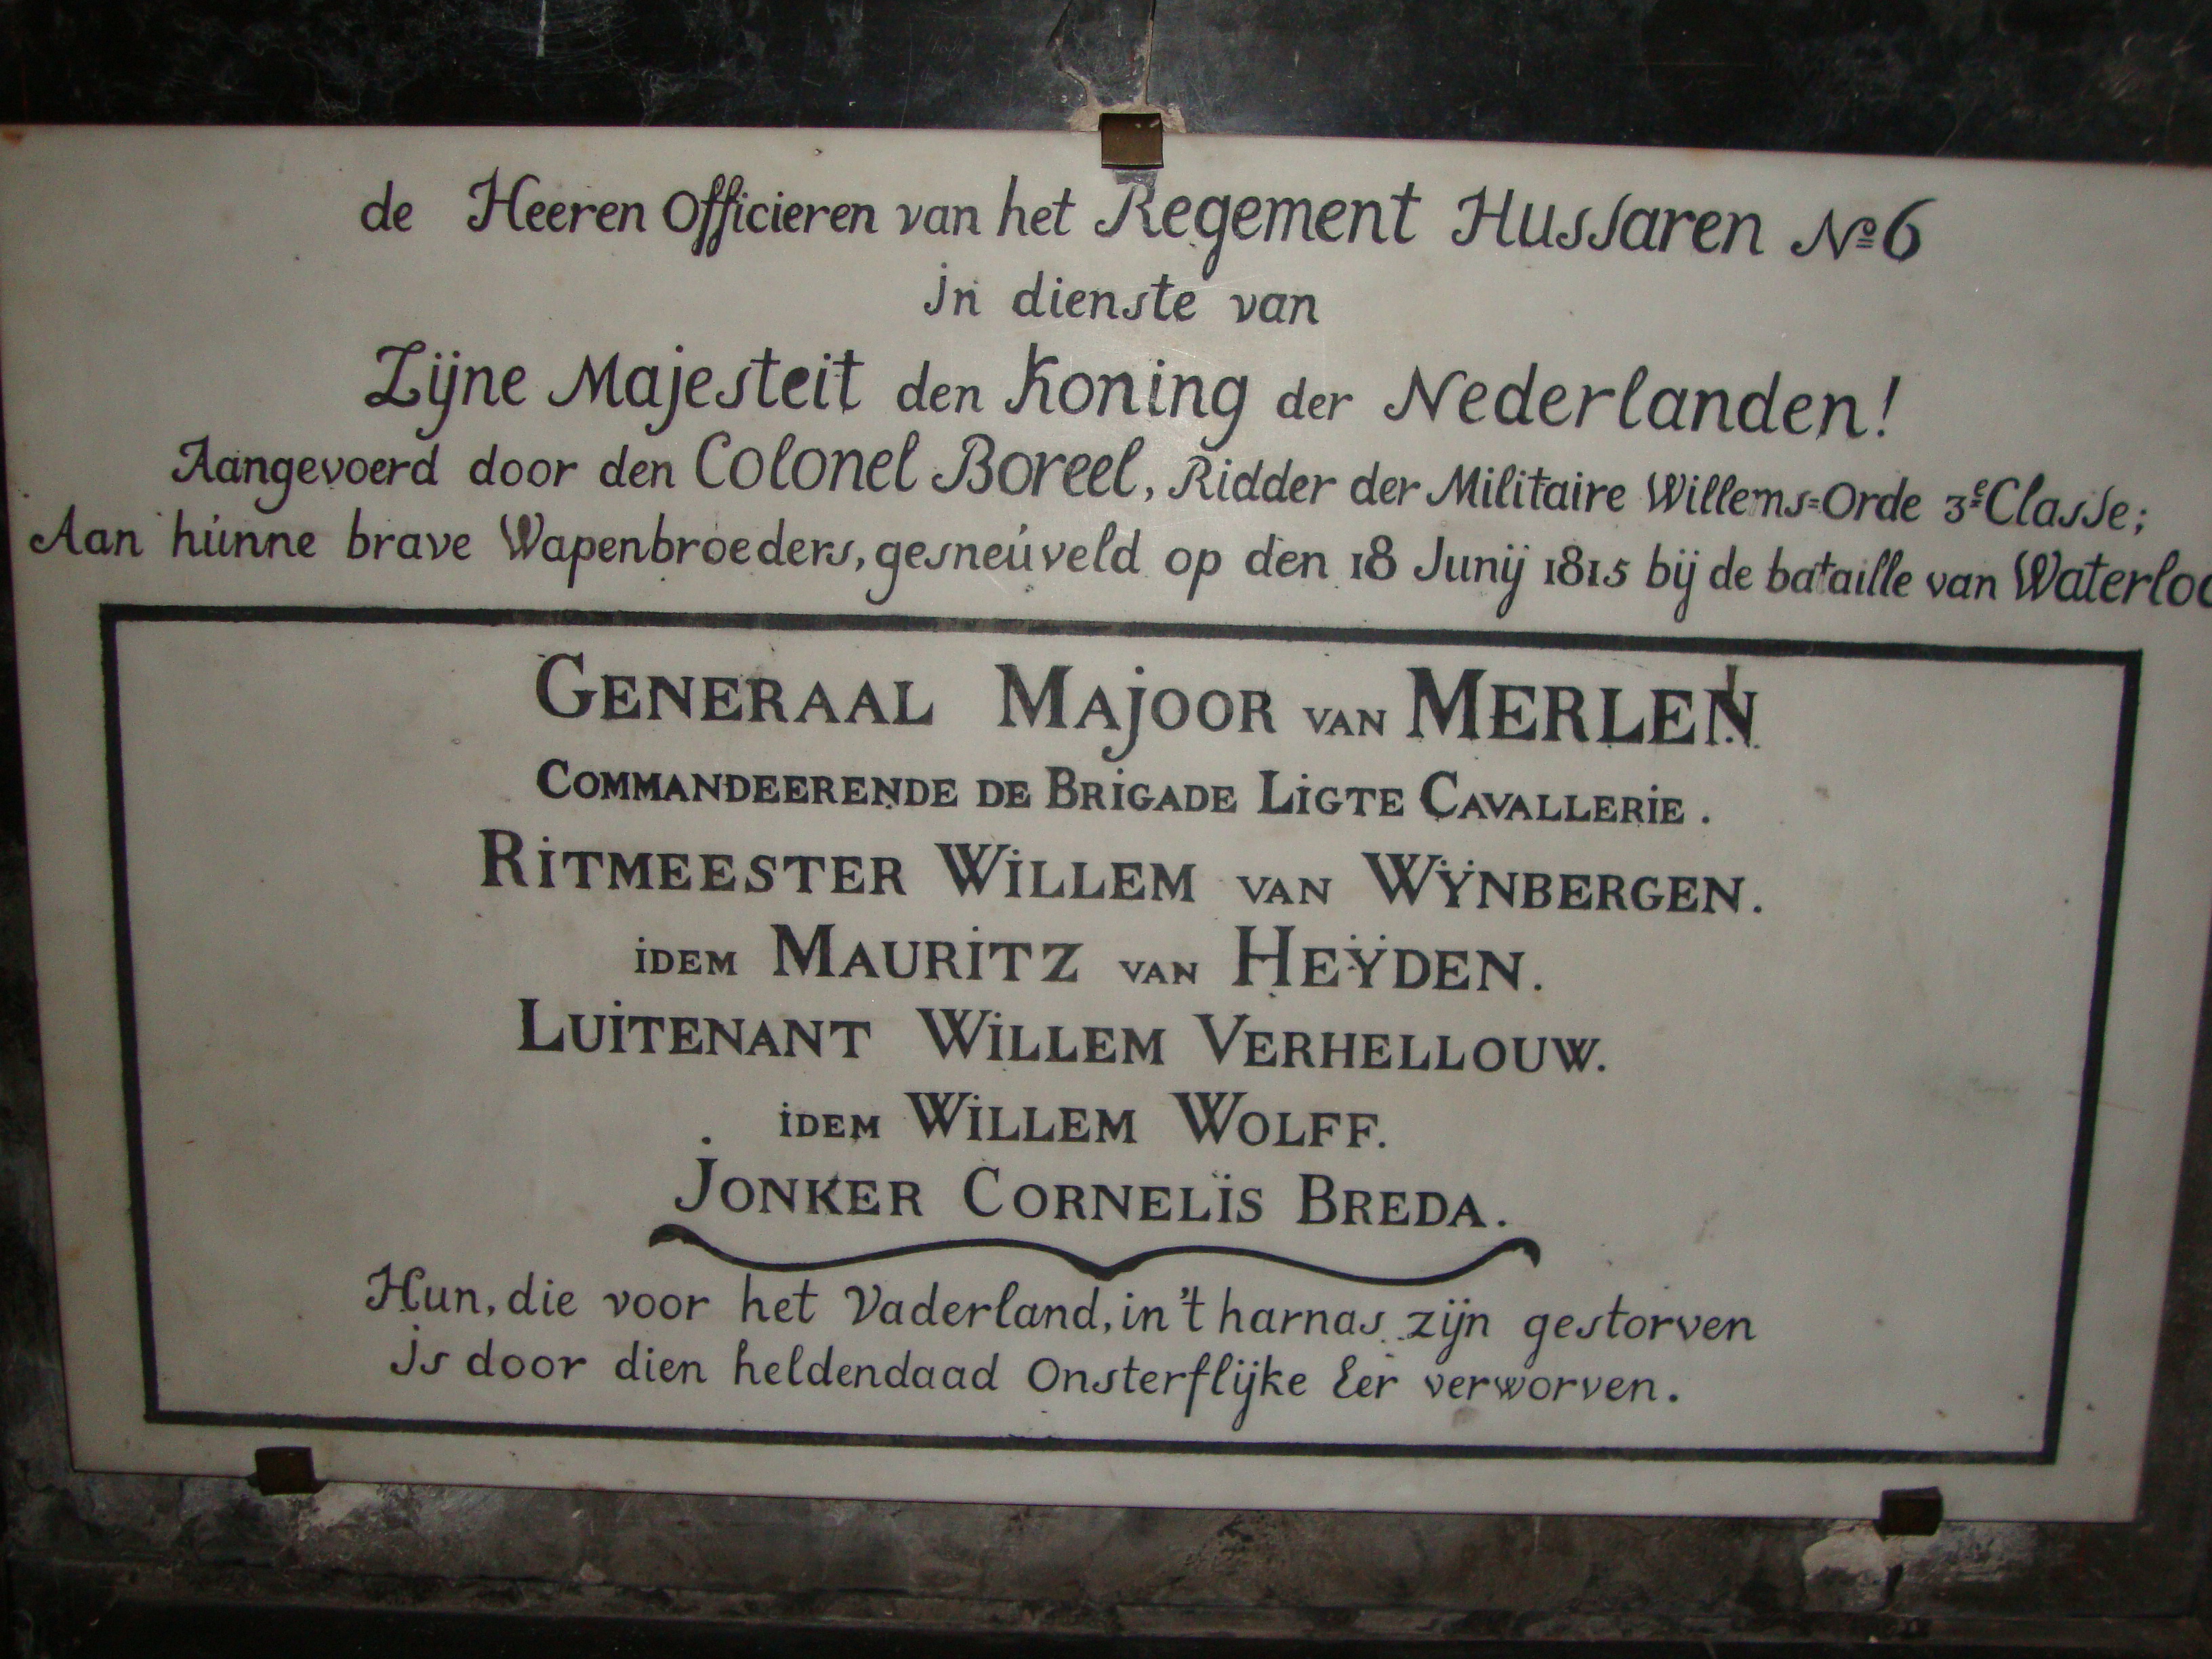 de Heeren Officieren van het Regement Hussaren № 6
in dienste van
Zijne Majesteit den Koning der Nederlanden!
Aangevoerd door den Colonel Boreel, Ridder der Militaire Willems=Orde 3e Classe;
Aan húnne brave Wapenbroeders, gesneúveld op den 18 Junij 1815 bij de bataille van Waterloo
GENERAAL MAJOOR VAN MERLEN
COMMANDEERENDE DE BRIGADE LIGTE CAVALLERIE.
RITMEESTER WILLEM VAN WŸNBERGEN.
IDEM MAURITZ VAN HEŸDEN.
LUITENANT WILLEM VERHELLOUW.
IDEM WILLEM WOLFF.
JONKER CORNELÏS BREDA.
Hun, die voor het Vaderland, in 't harnas zijn gestorven
is door dien heldendaad Onsterflijke Eer verworven.